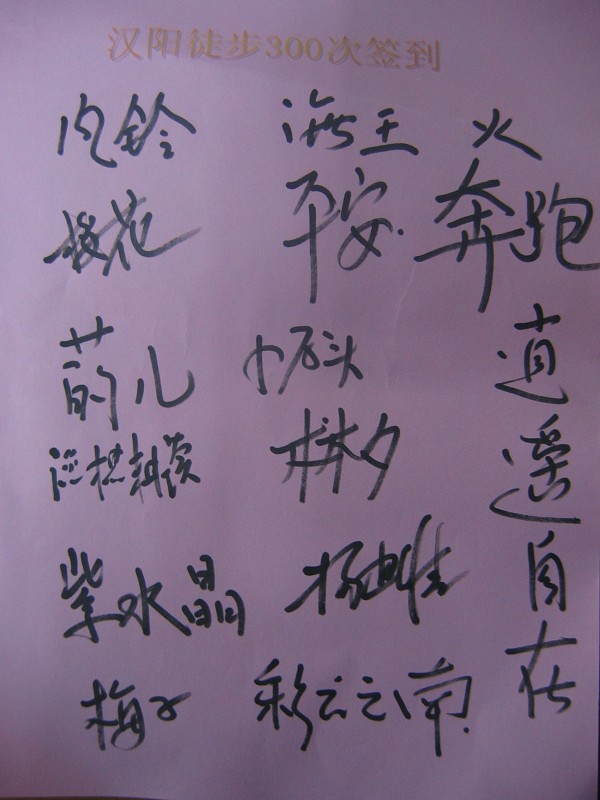 汉阳徒步300次签到
风铃 海王 火
樱花 平安 奔跑
萌儿 小石头
逍遥自在
林夕
紫水晶
梅子 彩云之南